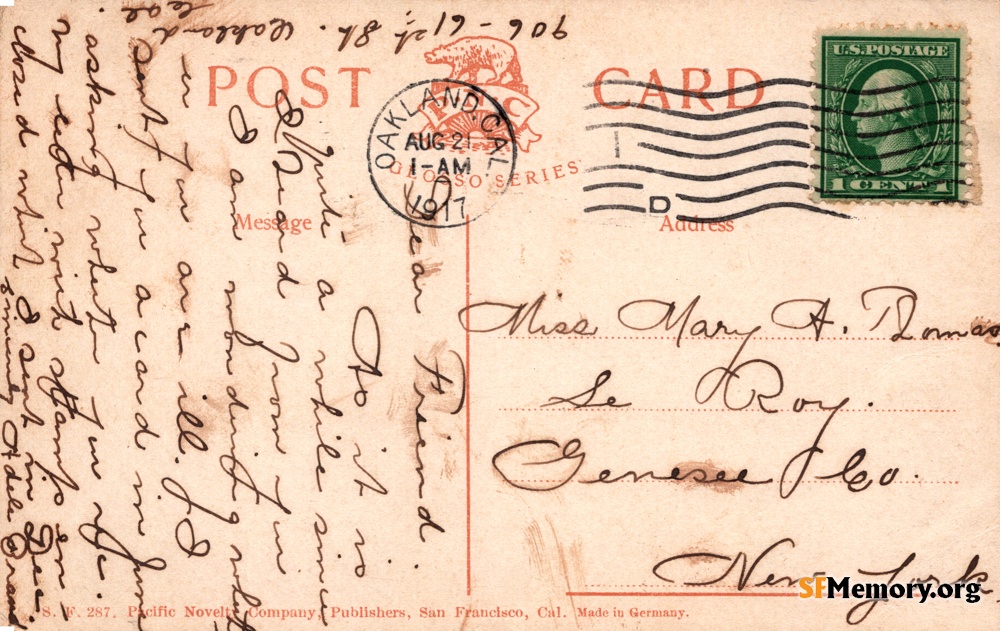 POST CARD
U.S. POSTAGE
1 CENT 1
OAKLAND, CAL.
AUG 21
1-AM
1917
D
GLOSSO SERIES
Message
Address
906 - 61st St. Oakland
Cal.
Dear Friend
As it is
quite a while since
I heard from you
I am wondring
you are ill. I
sent you a card in June
asking
my letter with stamps en-
closed which I sent in Dec.
Sincerely Adele
Miss Mary A. Thomas
Le Roy.
Genesee Co.
New York
S. F. 287. Pacific Novelty Company, Publishers, San Francisco, Cal. Made in Germany.
SFMemory.org